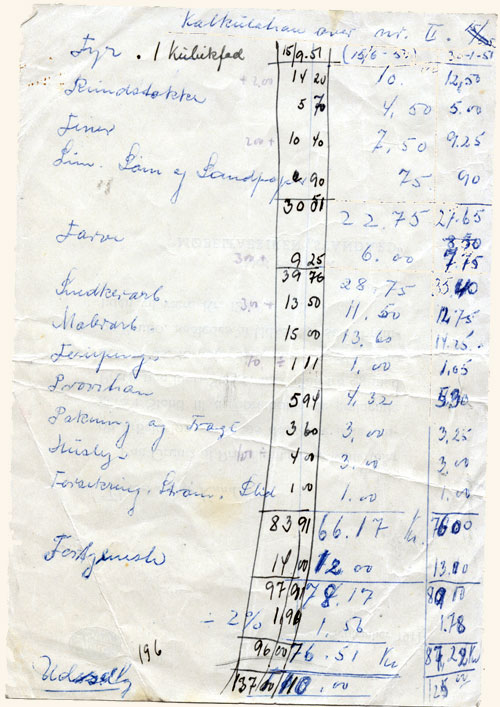 Kalkulation over nr. II.
Fyr . 1 Kubikfod 15/9.51 (15/6-50) 3-1-51
+ 200 14 20 10. 12,50
Rundstokke 5 70 4,50 5.00
Finer 200 + 10 40 7,50 9.25
Lim. Søm og Sandpapir 90 75 90
30 51 22.75 27.65
8.50
Farve 300 + 9 25 6.00 7.75
39 76 28.75 35.40
Snedkerarb. 300 + 13 50 11,50 12,75
Malerarb 15 00 13.60 14.25
1 11 1,00 1,05
Provision 5 94 4,32 5,30
Pakning og Fragt 3 60 3,00 3,25
Husleje 4 00 3.00 3,00
Forsikring. Strøm. 1 00 1.00 1.00
83 91 66.17 Kr. 76 00
Fortjeneste 14 00 12.00 13.00
97 91 78.17 89
- 2% 1,96 1.56 1.78
196 96 00 76.51 Kr 87,22 Kr
Udsalg 137 00 110.00 125 00